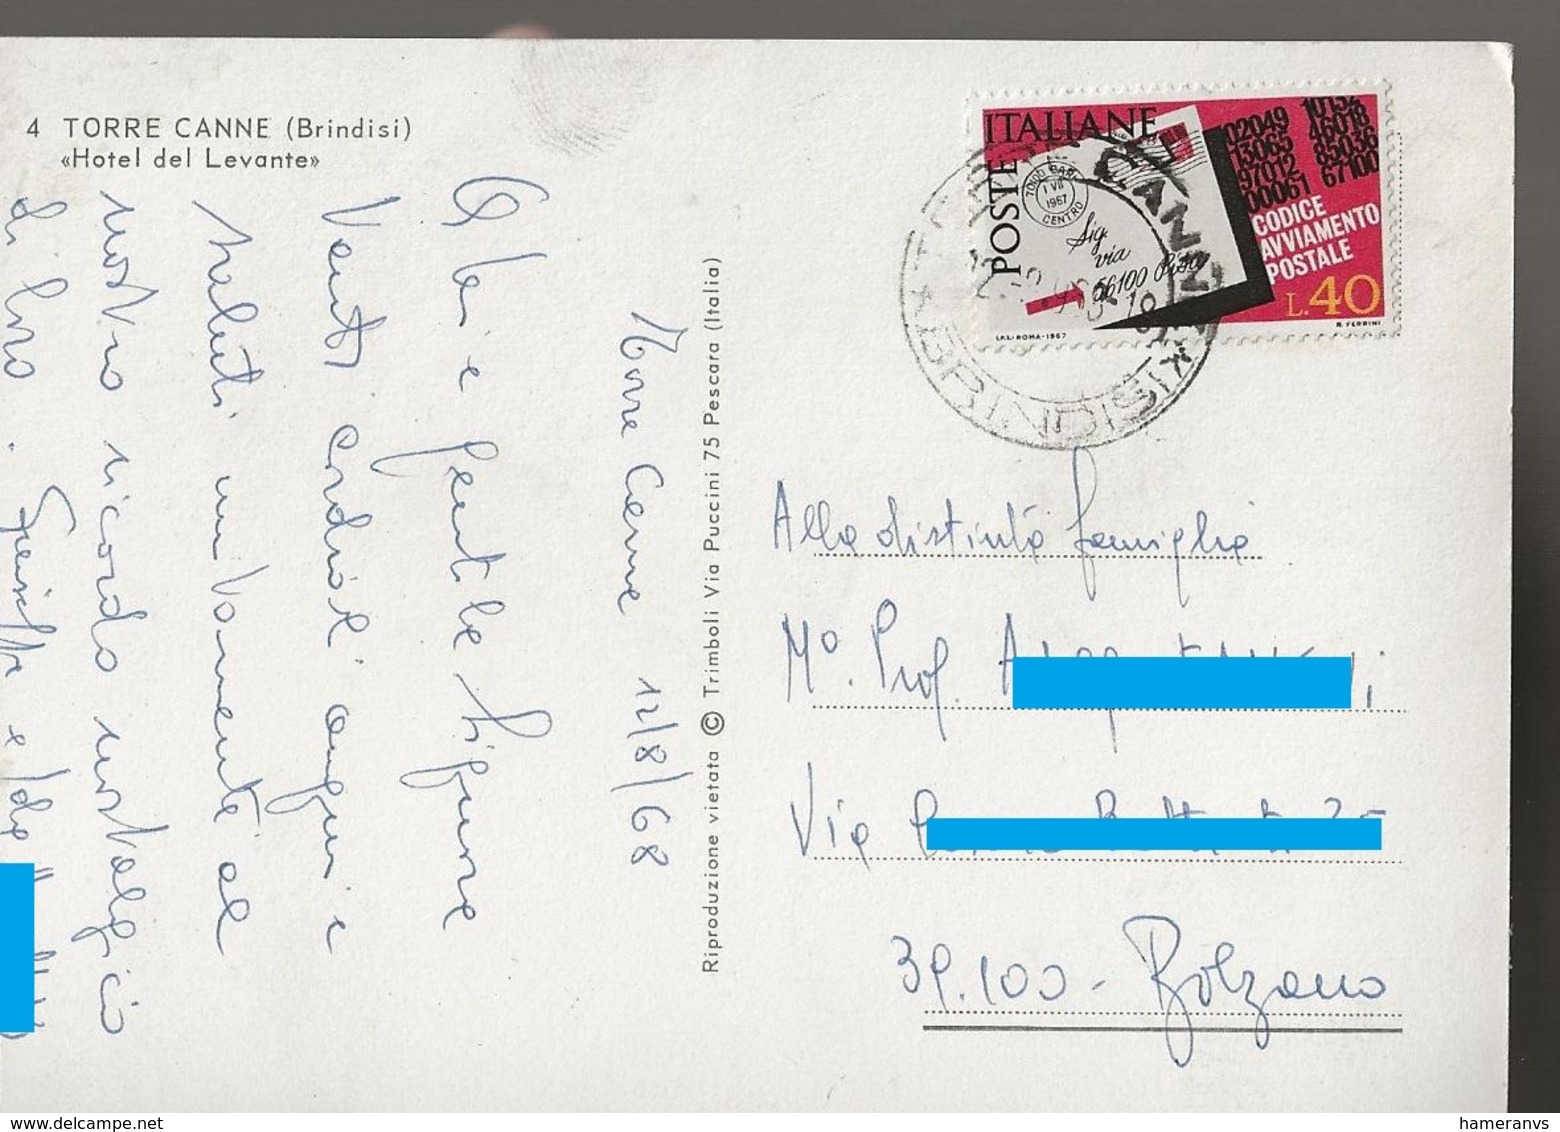 4 TORRE CANNE (Brindisi)
«Hotel del Levante»
Torre Canne 12/8/68
A lei e gentile Signora
cordiali auguri e
saluti unitamente al
nostro ricordo nostalgico
di loro.
Riproduzione vietata © Trimboli Via Puccini 75 Pescara (Italia)
POSTE ITALIANE
70100 BARI
1 VII
1967
CENTRO
Sig.
via
56100 Pisa
02049
13065
97012
00061
10132
46018
85036
67100
CODICE
AVVIAMENTO
POSTALE
L.40
I.P.S.-ROMA-1967
R. FERRINI
BRINDISI
Alla distinta famiglia
M° Prof.
Via
39.100 - Bolzano
hameranvs